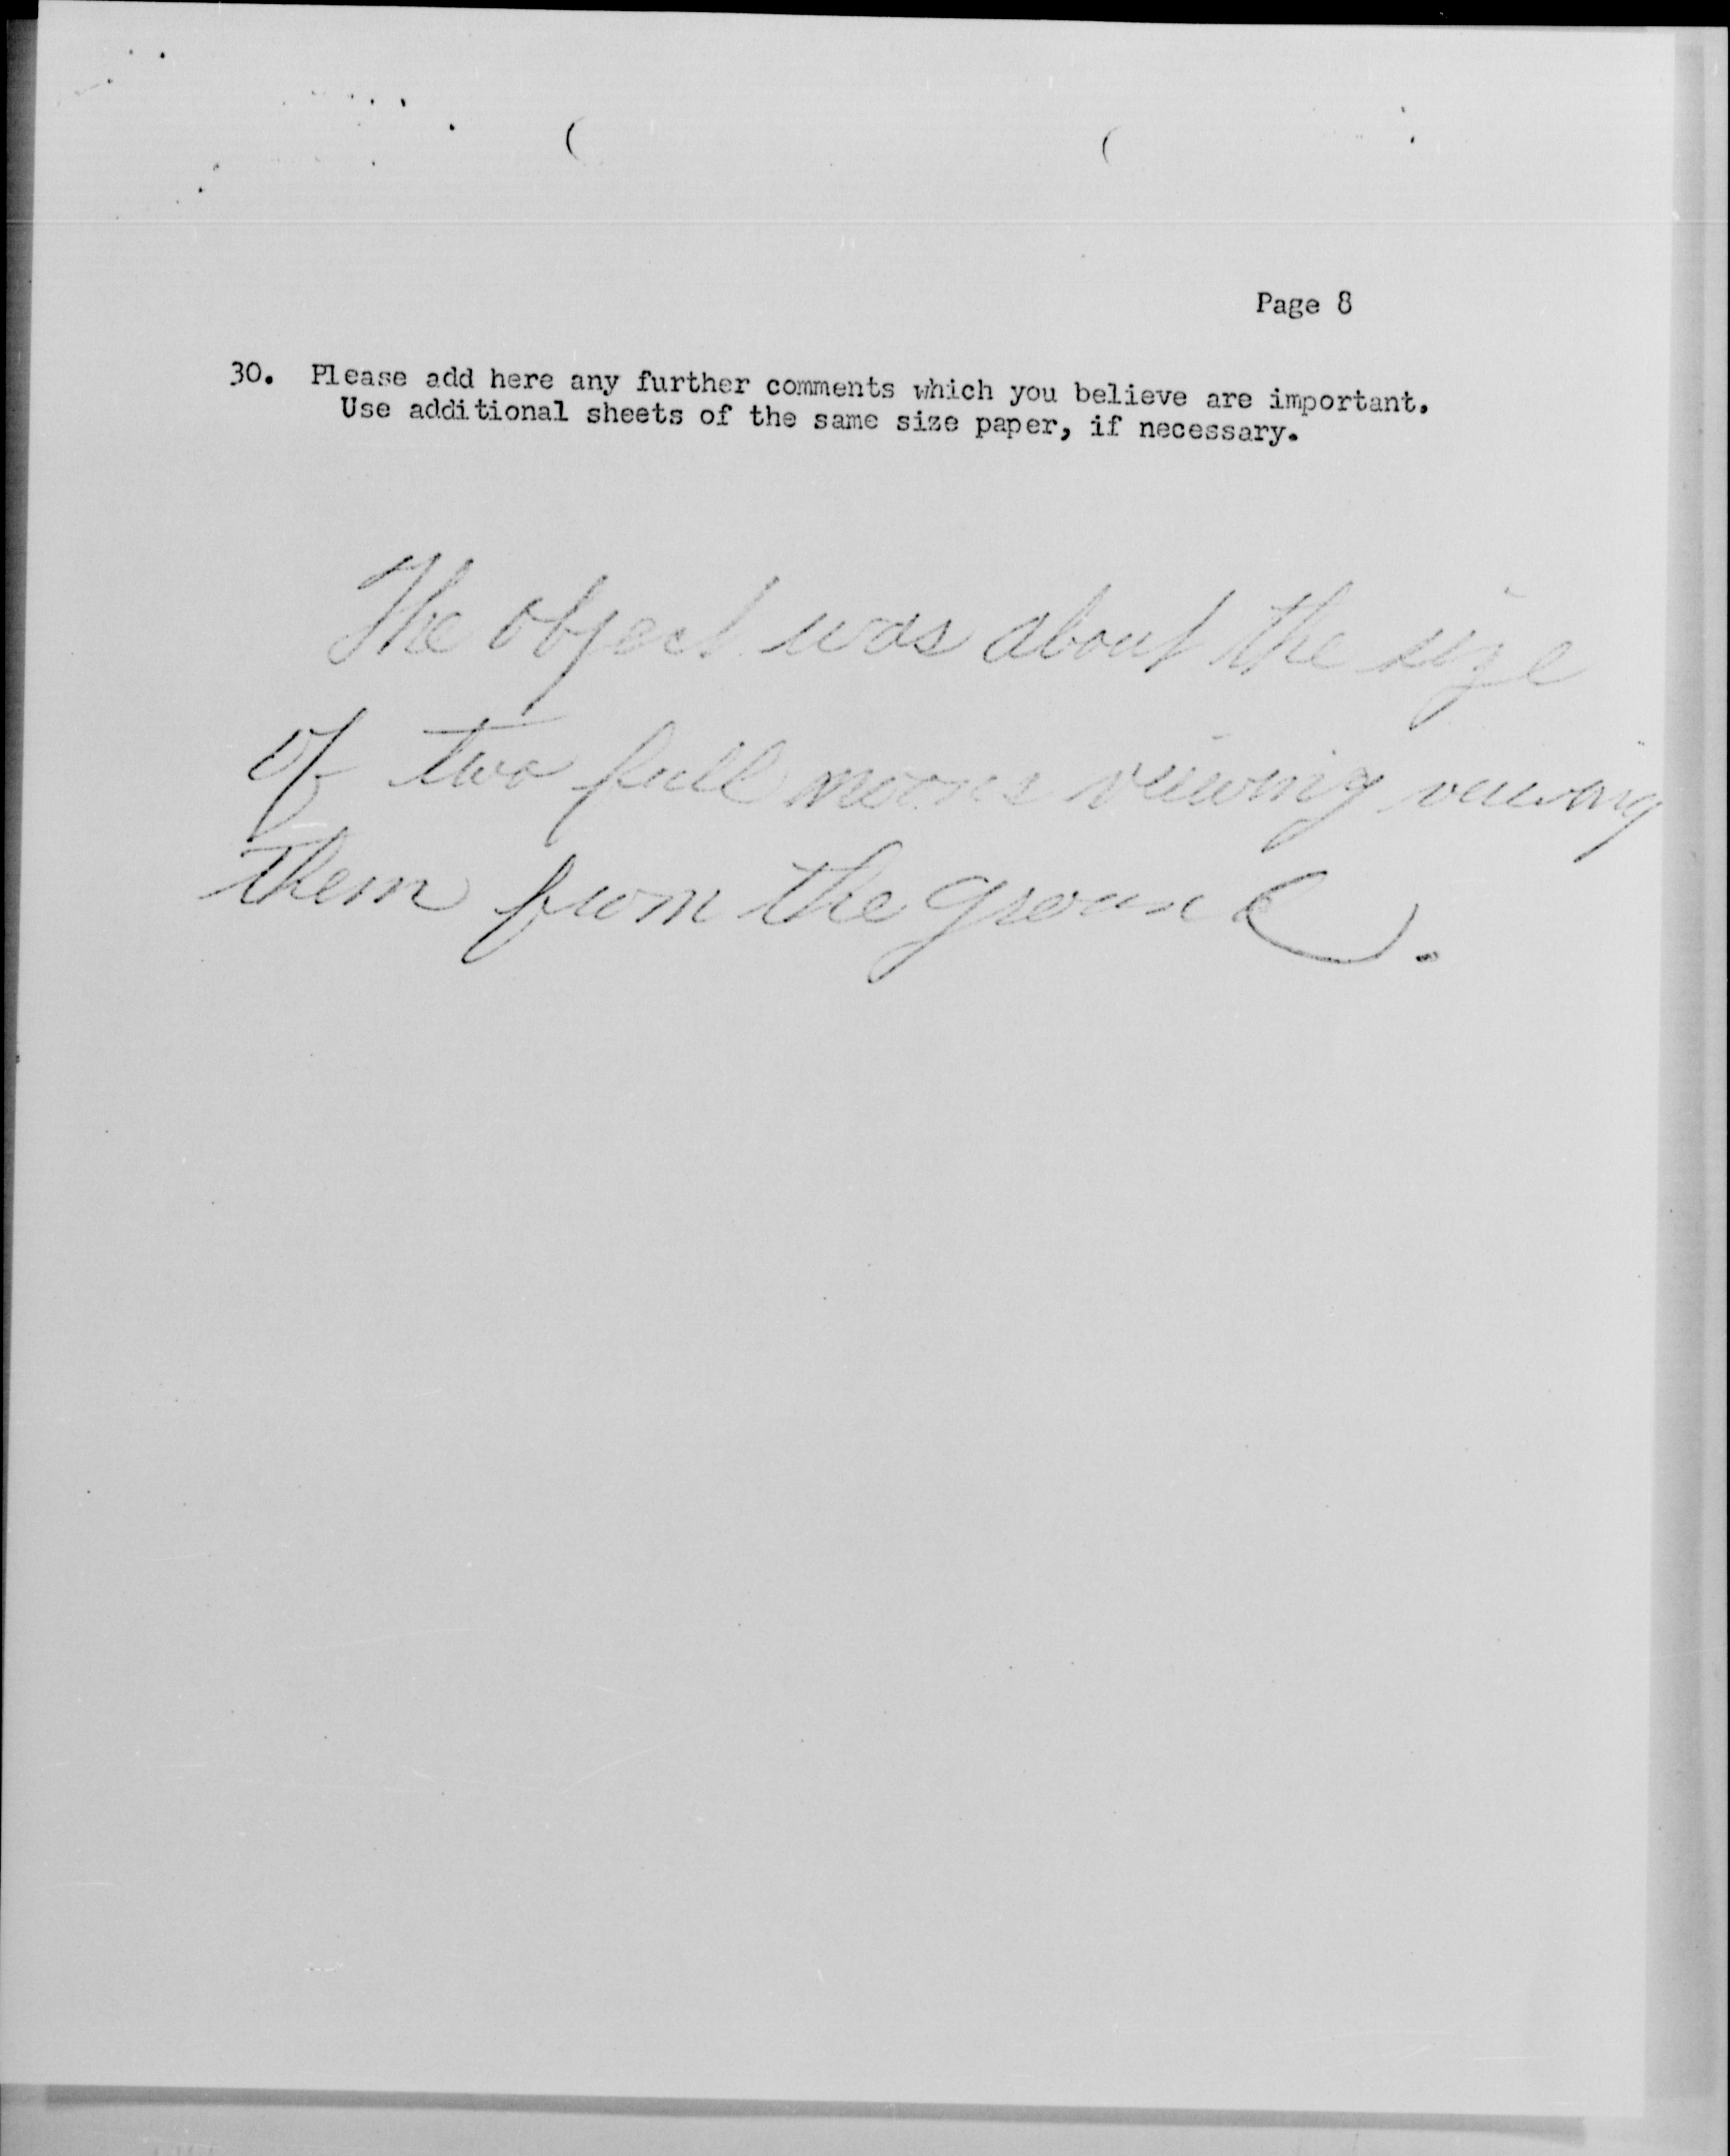 Page 8
30. Please add here any further comments which you believe are important.
Use additional sheets of the same size paper, if necessary.
The object was about the size
of two full moons viewing viewing
them from the ground.